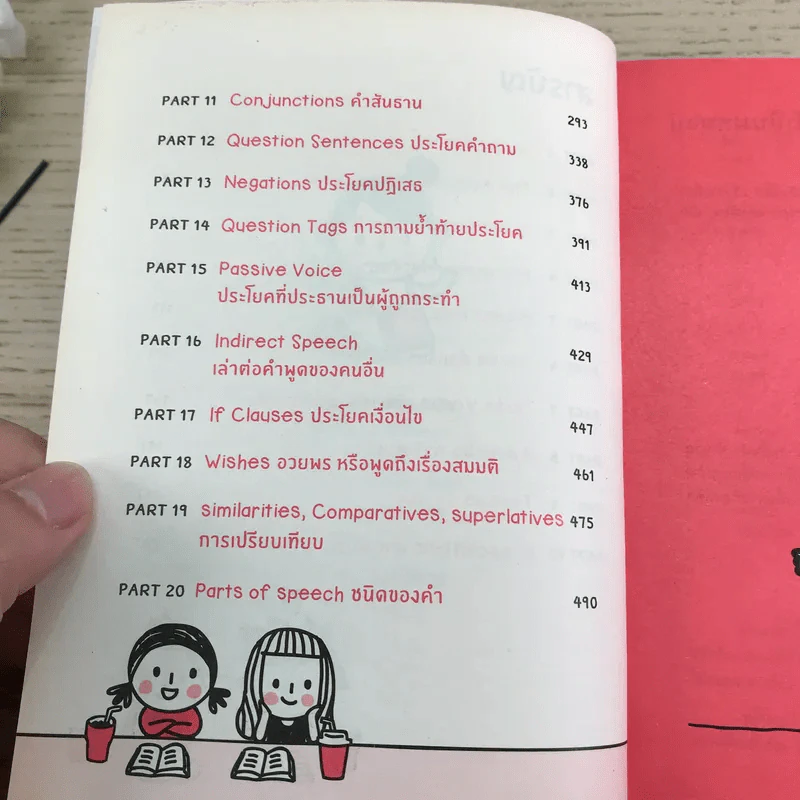 PART 11 Conjunctions คำสันธาน 293
PART 12 Question Sentences ประโยคคำถาม 338
PART 13 Negations ประโยคปฏิเสธ 376
PART 14 Question Tags การถามย้ำท้ายประโยค 391
PART 15 Passive Voice 413
ประโยคที่ประธานเป็นผู้ถูกกระทำ
PART 16 Indirect Speech 429
เล่าต่อคำพูดของคนอื่น
PART 17 If Clauses ประโยคเงื่อนไข 447
PART 18 Wishes อวยพร หรือพูดถึงเรื่องสมมติ 461
PART 19 similarities, Comparatives, superlatives 475
การเปรียบเทียบ
PART 20 Parts of speech ชนิดของคำ 490